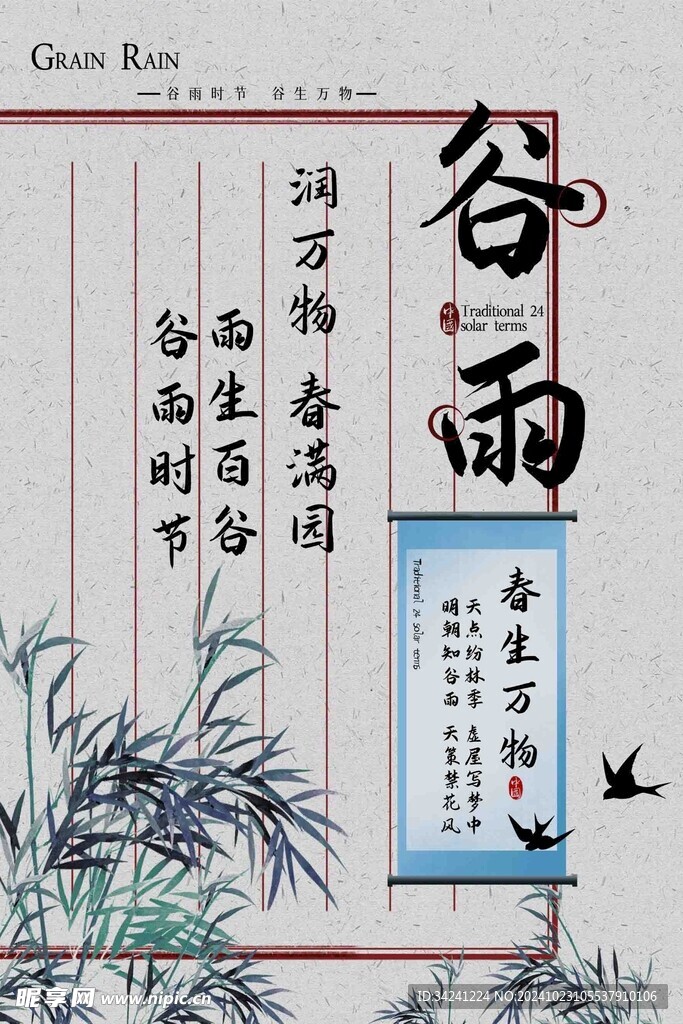 GRAIN RAIN
谷雨时节 谷生万物
谷雨
中國
Traditional 24
solar terms
润万物 春满园
雨生百谷
谷雨时节
春生万物
中國
天点纷林季 虚屋写梦中
明朝知谷雨 天策禁花风
Traditional 24 solar terms
昵享网 www.nipic.cn
ID:34241224 NO:20241023105537910106